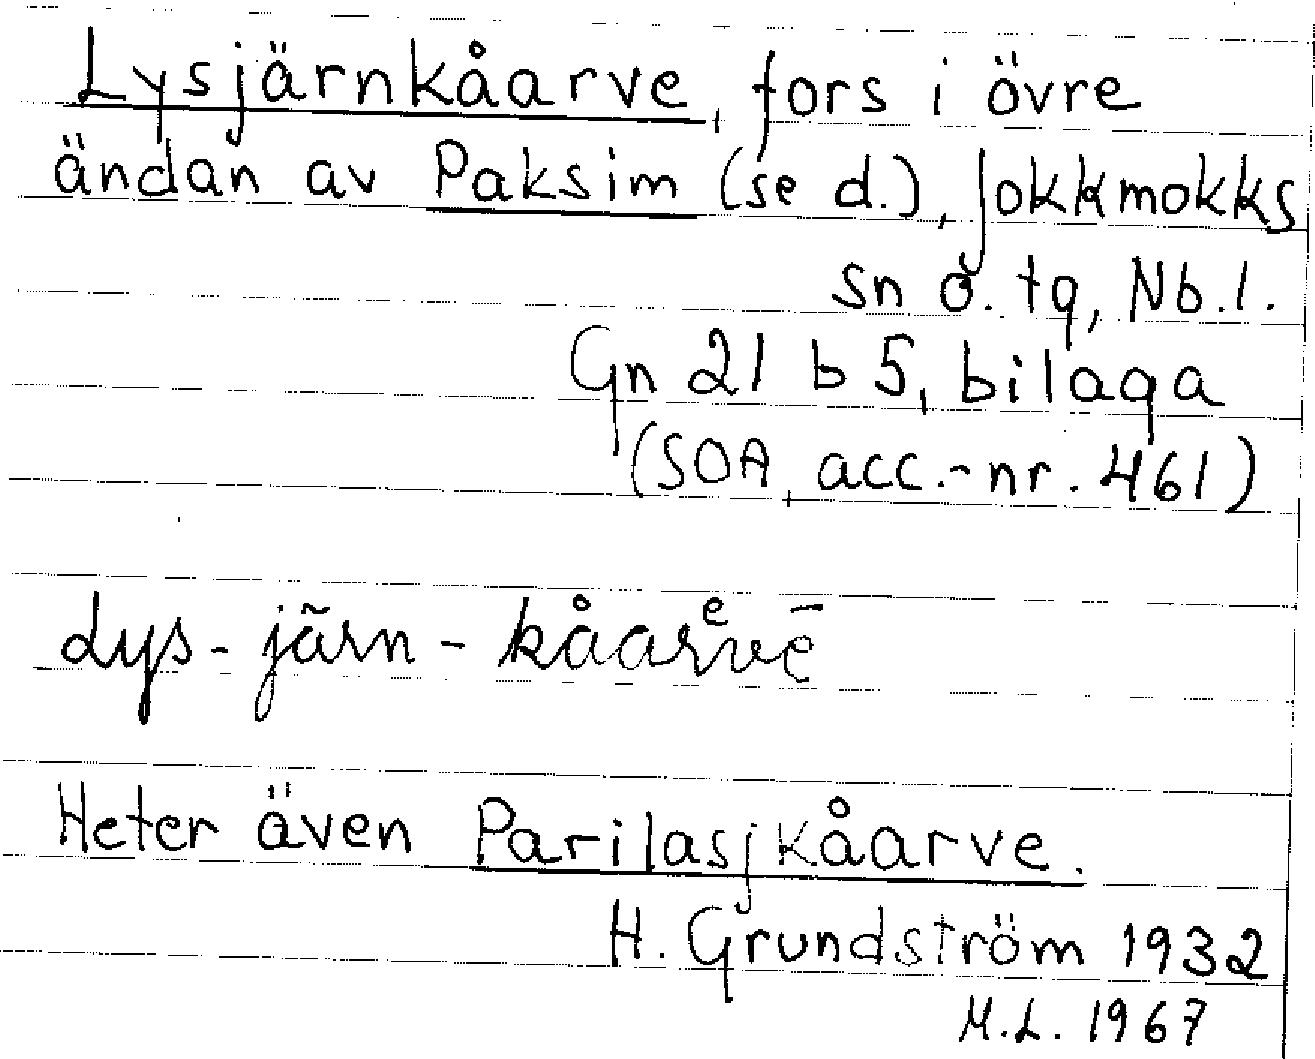 Lysjärnkåarve, fors i övre
ändan av Paksim (se d.), Jokkmokks
sn o. tg, Nb. l.
Gn 21 b 5, bilaga
(SOA, acc.-nr. 461)
Lys-järn-kåarvē
Heter även Parilasjkåarve.
H. Grundström 1932
M.L. 1967